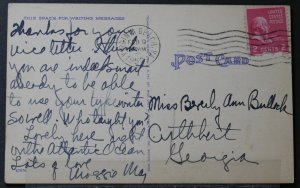 THIS SPACE FOR WRITING MESSAGES
Thanks for your
nice letter I think
you are indeed smart
already to be able
to use your typewriter
so well. Who taught you?
Lovely here right
on the Atlantic Ocean.
Lots of love
May
POST CARD
UNITED STATES
POSTAGE
2 CENTS 2
Miss Beverly Ann Bullock
Cuthbert
Georgia